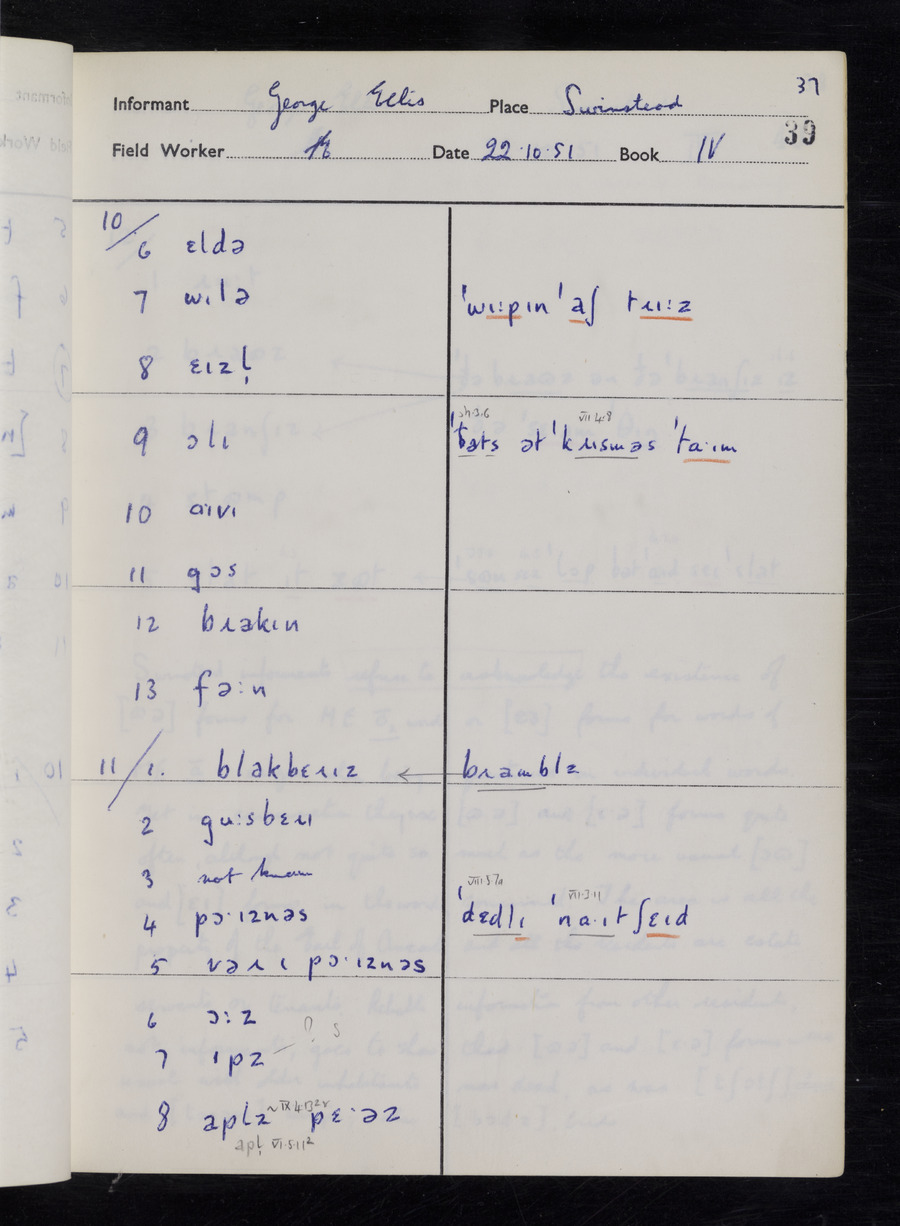 37
Informant George Ellis Place Swinstead
39
Field Worker Date 22·10·51 Book IV
10/
6 ɛldə
7 wɪlə ˈwɪːpɪn ˈaʃ tɹɪːz
8 ɛɪzl̩
VII.4.8
9 ɔlɪ ət ˈkɹɪsməs ˈtaˑɪm
10 aɪvɪ
11 gɔs
12 bɹakɪn
13 fəːn
11/1. blakbɛɹɪz ← bɹamblz
2 guːsbɛɹɪ
3 not known
VII.5.7a VII.3.11
4 pɔˑɪznəs ˈdɛdlɪ ˈnaˑɪtʃɛɪd
5 vaɹɪ pɔˑɪznəs
6 ɔːz
? s
7 ɪpz
8 aplz ~ IX.4.13 pɛˑəz
apl̩ VI.5.11²